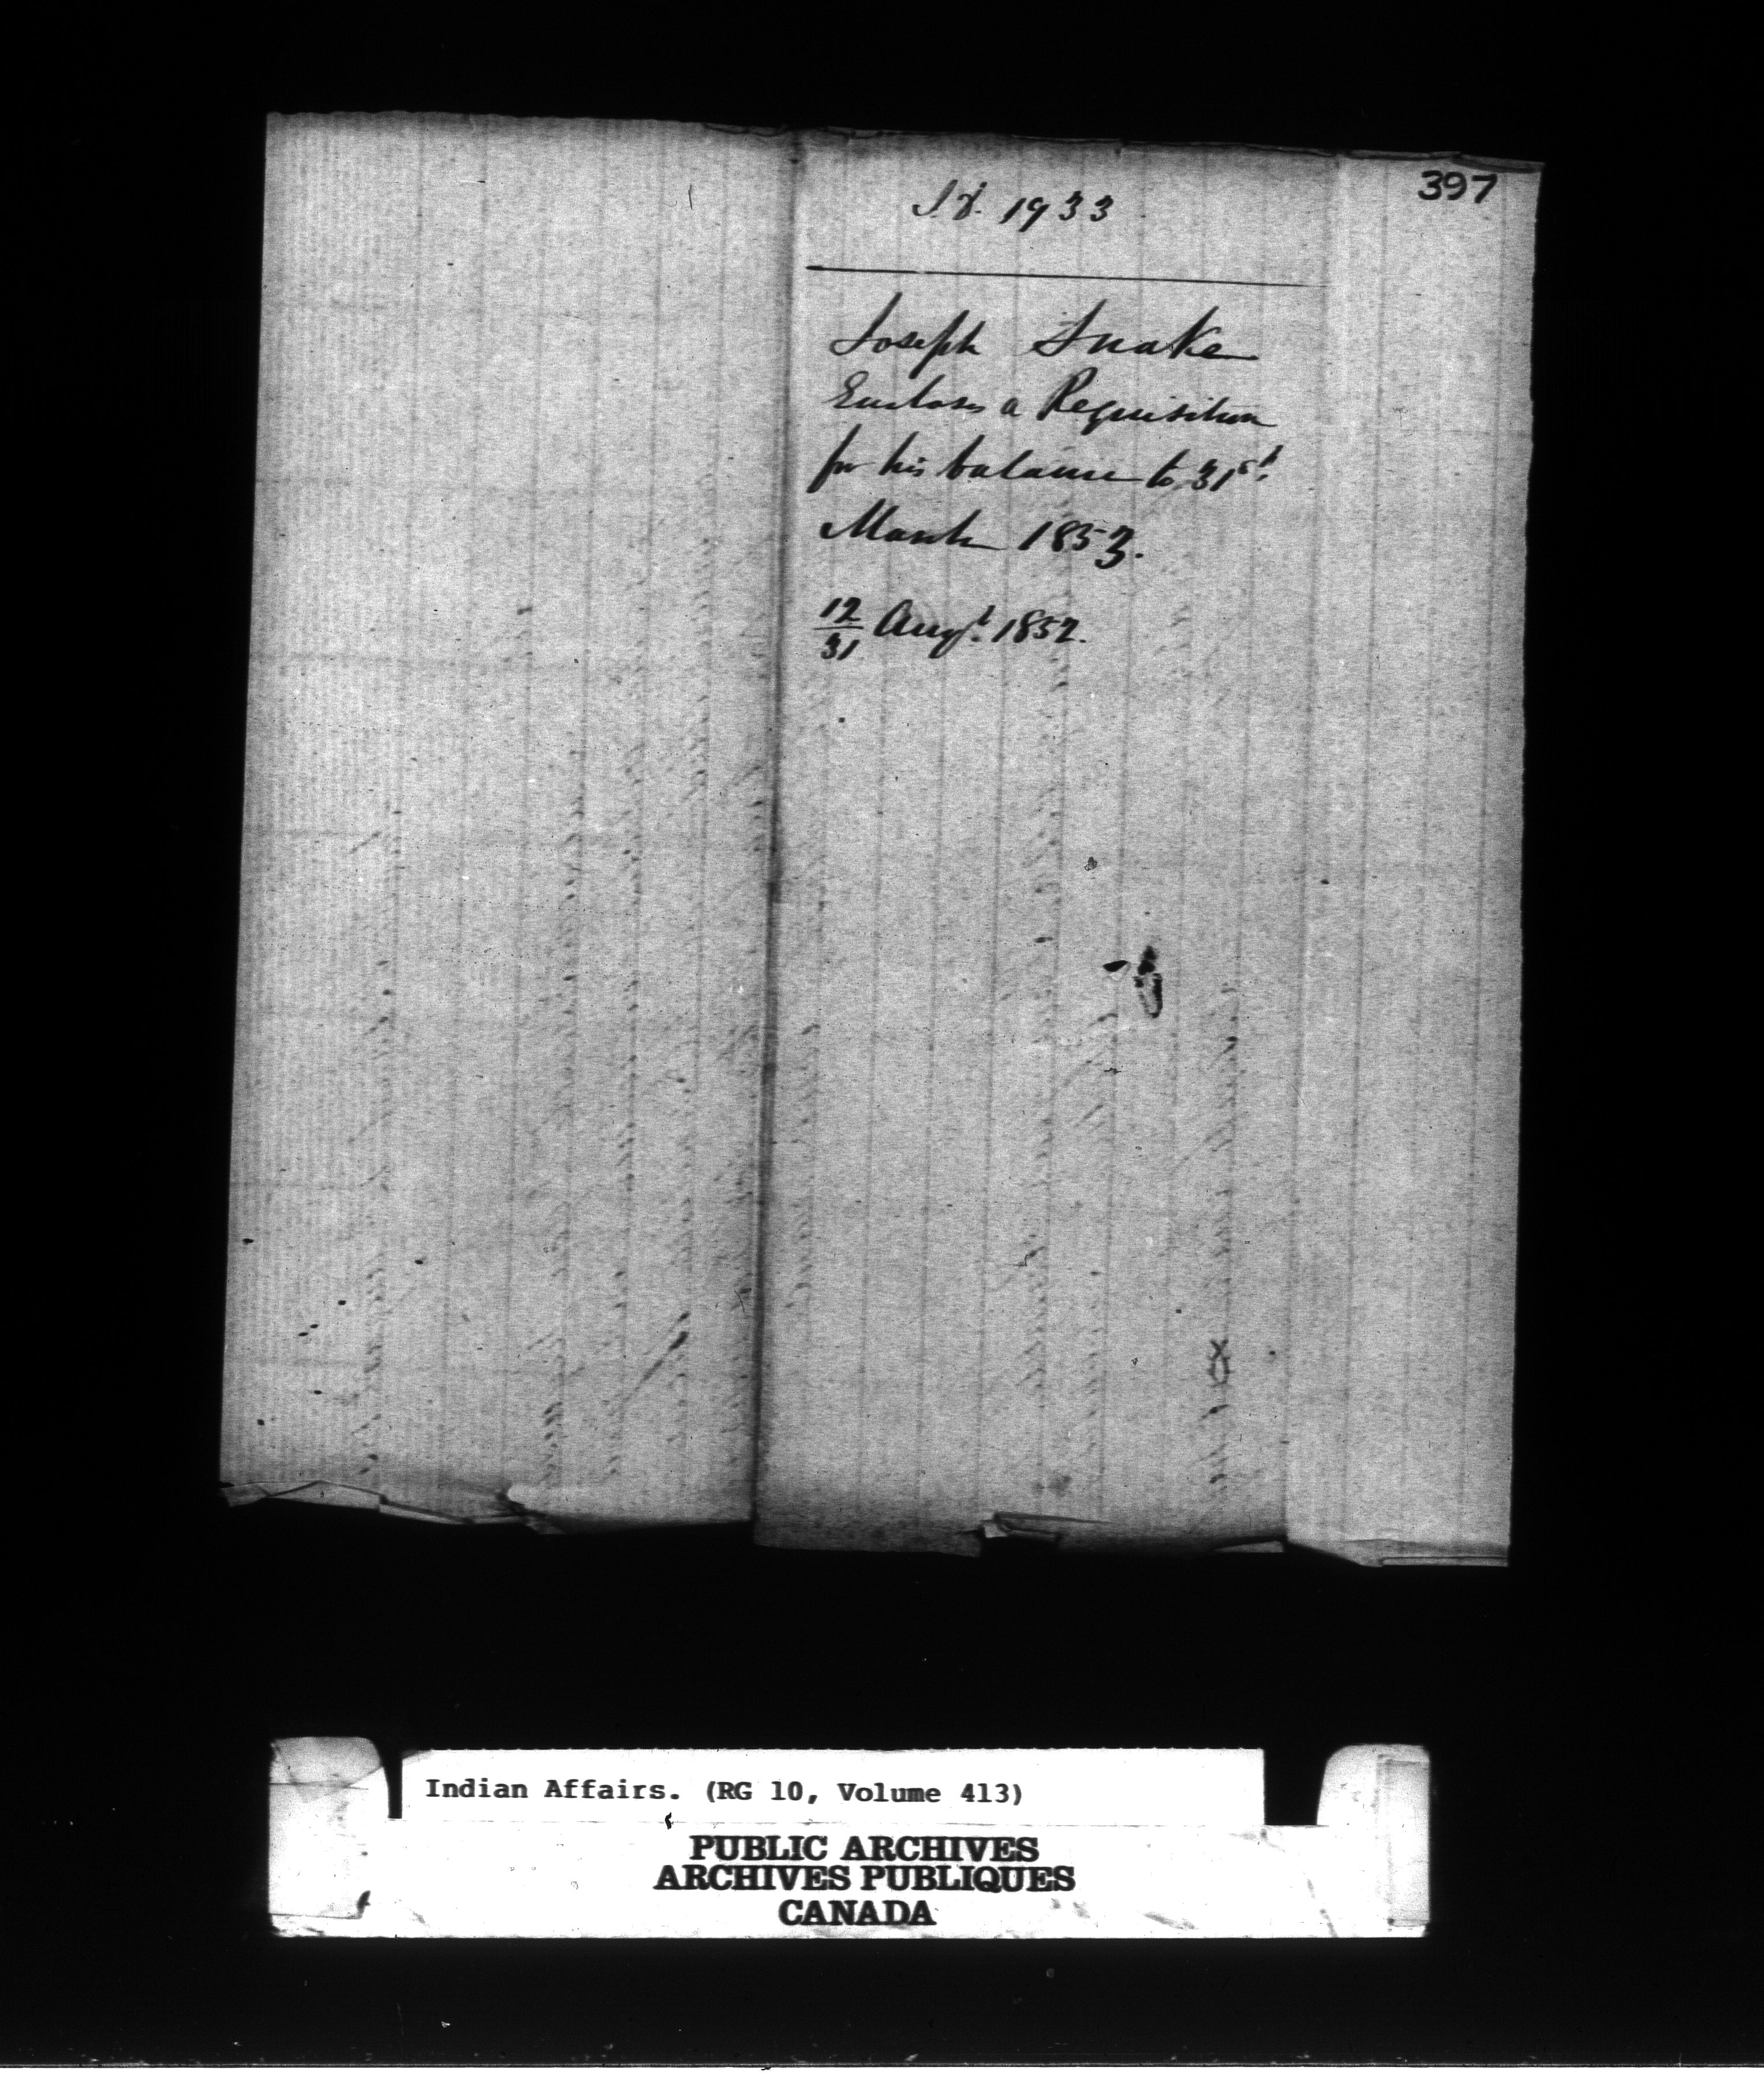 397
I.d. 1933
Joseph Snake
Encloses a Requisition
for his balance to 31st
March 1853.
12/31 Augt. 1852.
Indian Affairs. (RG 10, Volume 413)
PUBLIC ARCHIVES
ARCHIVES PUBLIQUES
CANADA